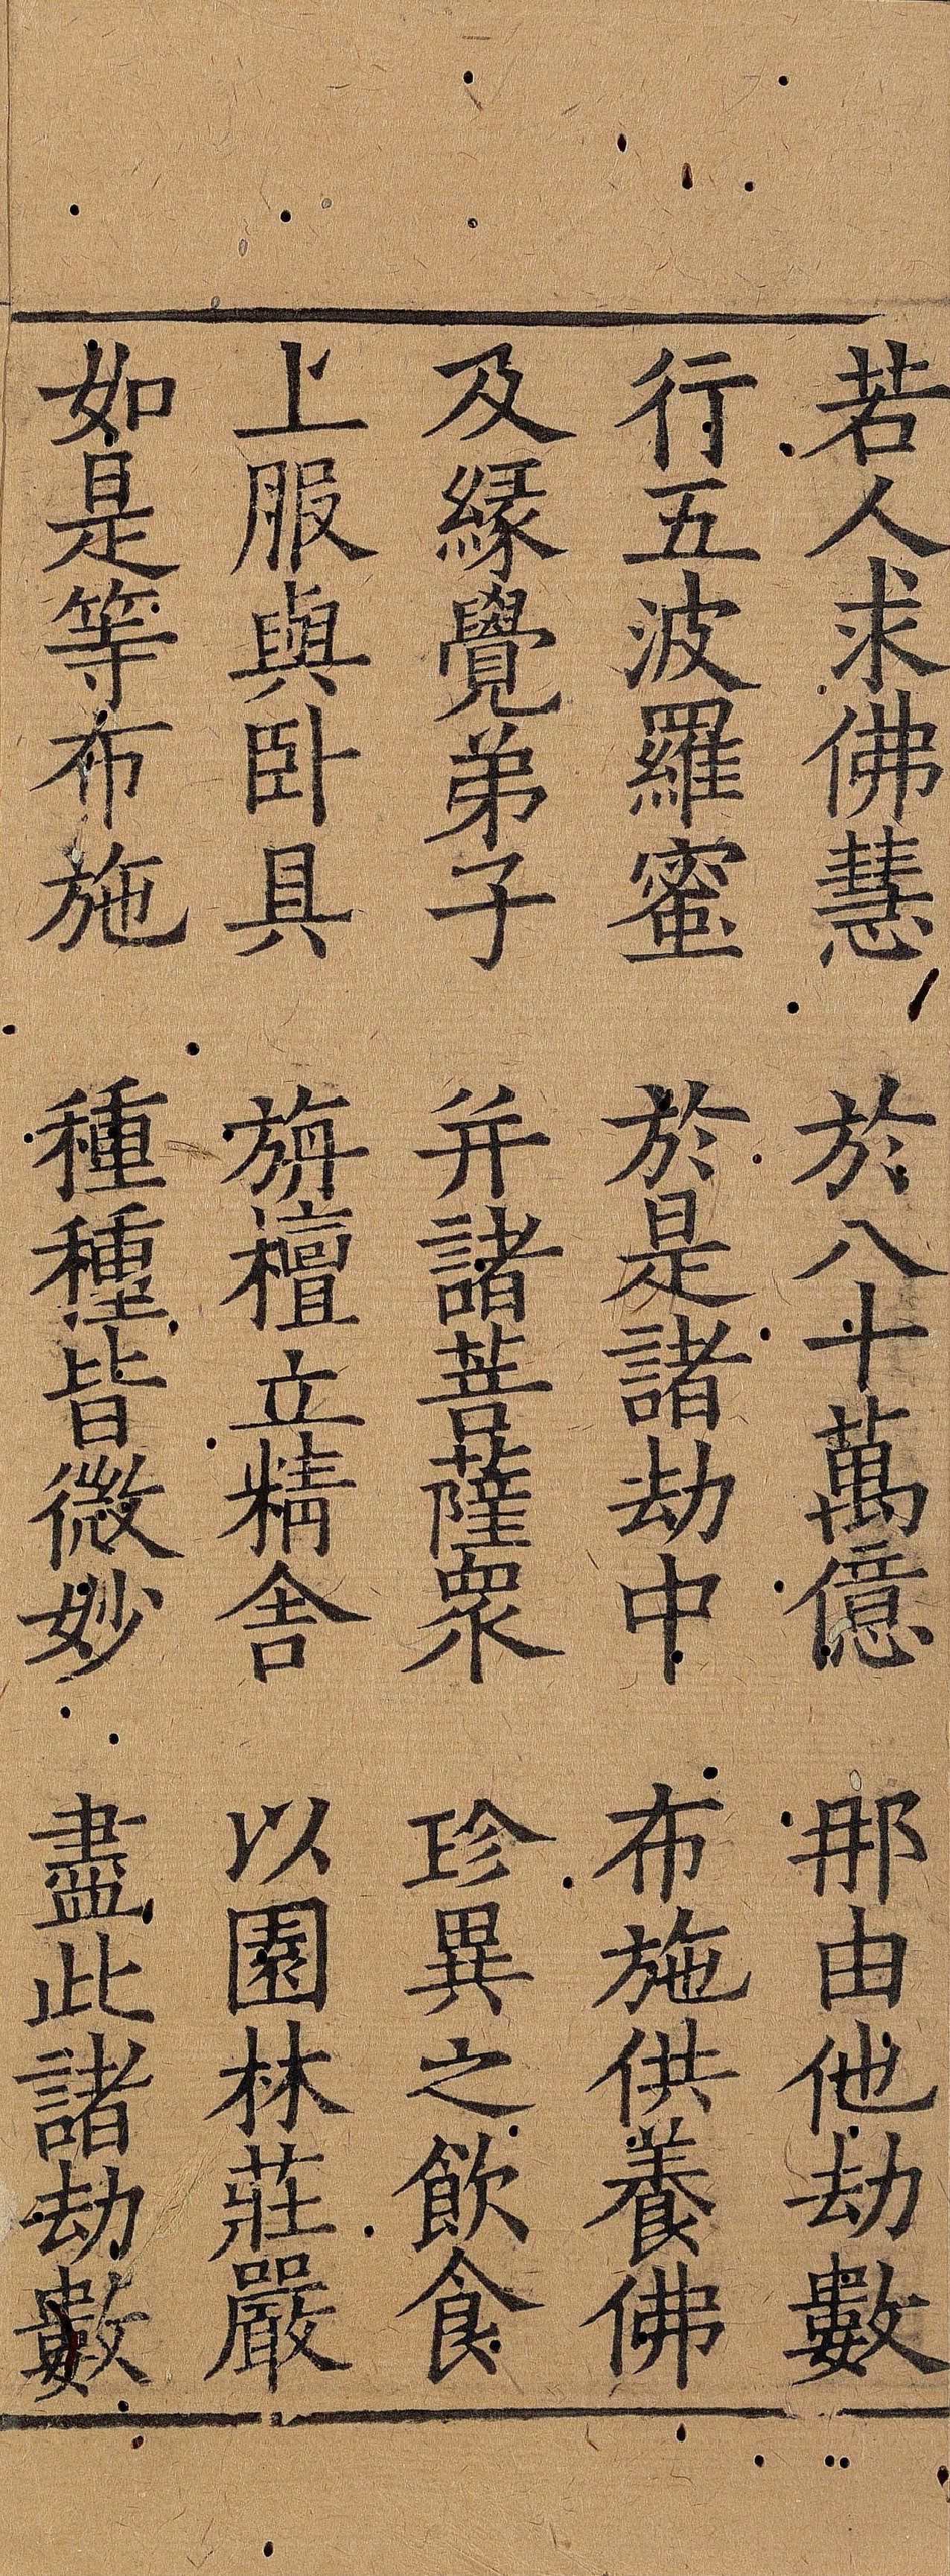 若人求佛慧　於八十萬億　那由他劫數
行五波羅蜜　於是諸劫中　布施供養佛
及緣覺弟子　并諸菩薩衆　珍異之飲食
上服與卧具　旃檀立精舍　以園林莊嚴
如是等布施　種種皆微妙　盡此諸劫數